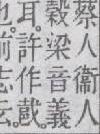 蔡人衞人
穀梁音義
耳。許作。
也。前志云。